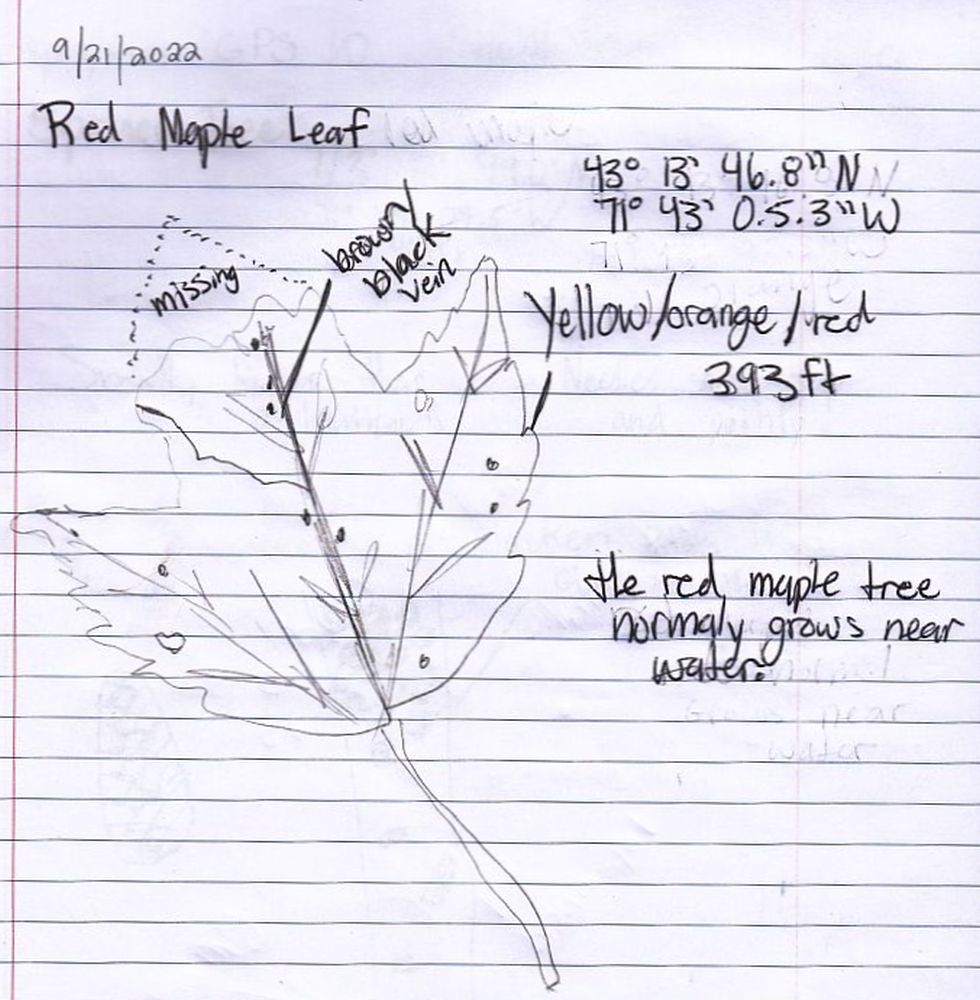 9/21/2022
Red Maple Leaf
43° 13' 46.8" N
71° 43' 0.5.3" W
brown/
black
vein
missing
Yellow/orange/red
393 ft
the red maple tree
normaly grows near
water.